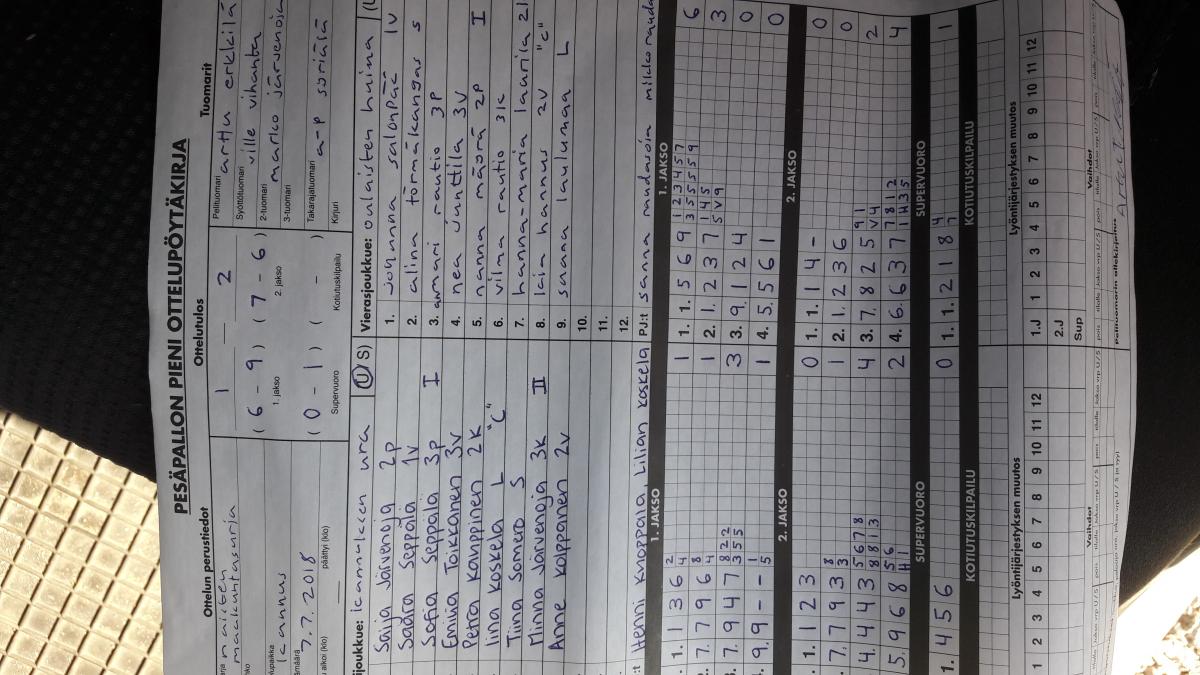 PESÄPALLON PIENI OTTELUPÖYTÄKIRJA
Ottelun perustiedot
naisten
maakuntasarja
Kannus
7.7.2018
alkoi (klo)
päättyi (klo)
Ottelutulos
1 — 2
( 6 - 9 ) ( 7 - 6 )
1. jakso 2. jakso
( 0 - 1 ) ( - )
Supervuoro Kotiutuskilpailu
Tuomarit
Pelituomari arttu erkkilä
Syöttötuomari ville vihanta
2-tuomari marko järvenoja
3-tuomari
Takarajatuomari a-p syrjälä
Kirjuri
ijoukkue: kannuksen ura (U/S)
Saija Järvenoja 2p
Saara Seppälä 1v
Sofia Seppälä 3p I
Emilia Toikkanen 3v
Petra Kamppinen 2k
Iina Koskela L "C"
Tiina Somero S
Minna Järvenoja 3k II
Anne Kopponen 2v
Henni Knoppala, Lilian Koskela
Vierasjoukkue: oulaisten huima
1. johanna salonpää 1v
2. alina törmäkangas s
3. anmari rautio 3p
4. nea junttila 3v
5. nanna määrä 2p I
6. vilma rautio 3k
7. hanna-maria laurila 2k
8. laia hannus 2v "c"
9. sanna laulumaa L
10.
11.
12.
PJ:t sanna raudasoja mikko rauda
1. JAKSO
1. 1 3 6 2 4 1
7. 7 9 6 8 4 1
7. 9 4 7 8 2 2 3 5 5 3
9. 9 - - 1 5 1
2. JAKSO
1. 1 2 3 0
7. 7 9 3 8 3 1
4. 4 4 3 5 6 7 8 8 8 1 3 4
5. 9 6 8 5 6 H 1 2
SUPERVUORO
1. 4 5 6 0
KOTIUTUSKILPAILU
1. JAKSO
1. 1. 5 6 9 1 2 3 4 5 7 3 5 5 5 5 9 6
2. 1. 2 3 7 1 4 5 5 V 9 3
3. 9. 1 2 4 0
4. 5. 5 6 1 0
2. JAKSO
1. 1. 1 4 - 0
2. 1. 2 3 6 0
3. 7. 8 2 5 9 1 V 4 2
4. 6. 6 3 7 7 8 1 2 1 H 3 5 4
SUPERVUORO
1. 1. 2 1 8 4 9 1
KOTIUTUSKILPAILU
Lyöntijärjestyksen muutos
1 2 3 4 5 6 7 8 9 10 11 12
Lyöntijärjestyksen muutos
1.J 1 2 3 4 5 6 7 8 9 10 11 12
2.J
Sup
Vaihdot
Vaihdot
Pelituomarin allekirjoitus